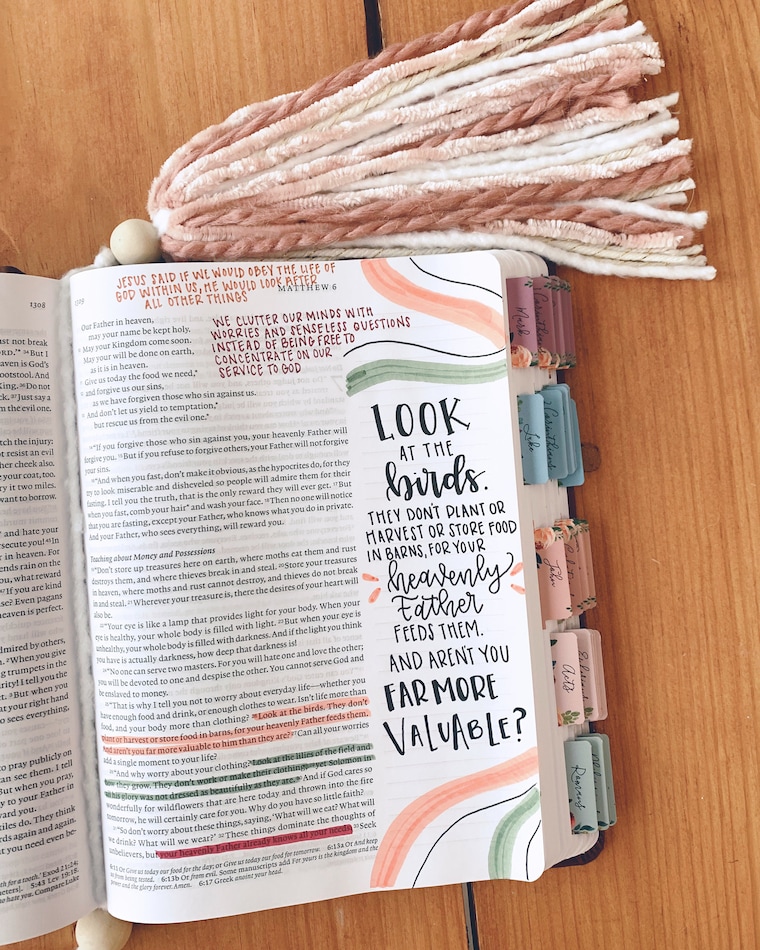 1308
ust not break
ORD.’” ³⁴But I
eaven is God’s
footstool. And
King. ³⁶Do not
³⁷Just say a
om the evil one.
tch the injury:
ot resist an evil
her cheek also.
e your coat, too.
ry it two miles.
want to borrow.
’ and hate your
rsecute you! ⁴⁵In
er in heaven. For
ends rain on the
ou, what reward
⁴⁷If you are kind
se? Even pagans
heaven is perfect.
dmired by others,
²“When you give
g trumpets in the
rity! I tell you the
³But when you
at your right hand
o sees everything,
to pray publicly on
can see them. I tell
But when you pray,
y to your Father in
ward you.
tiles do. They think
rds again and again.
at you need even be-
th for a tooth.’ Exod 21:24;
5:43 Lev 19:18.
w hate you. Compare Luke
JESUS SAID IF WE WOULD OBEY THE LIFE OF
GOD WITHIN US, HE WOULD LOOK AFTER
ALL OTHER THINGS
MATTHEW 6
WE CLUTTER OUR MINDS WITH
WORRIES AND SENSELESS QUESTIONS
INSTEAD OF BEING FREE TO
CONCENTRATE ON OUR
SERVICE TO GOD
Our Father in heaven,
may your name be kept holy.
May your Kingdom come soon.
May your will be done on earth,
as it is in heaven.
Give us today the food we need,*
and forgive us our sins,
as we have forgiven those who sin against us.
And don’t let us yield to temptation,*
but rescue us from the evil one.*
¹⁴“If you forgive those who sin against you, your heavenly Father will
forgive you. ¹⁵But if you refuse to forgive others, your Father will not forgive
your sins.
¹⁶“And when you fast, don’t make it obvious, as the hypocrites do, for they
try to look miserable and disheveled so people will admire them for their
fasting. I tell you the truth, that is the only reward they will ever get. ¹⁷But
when you fast, comb your hair* and wash your face. ¹⁸Then no one will notice
that you are fasting, except your Father, who knows what you do in private.
And your Father, who sees everything, will reward you.
Teaching about Money and Possessions
¹⁹“Don’t store up treasures here on earth, where moths eat them and rust
destroys them, and where thieves break in and steal. ²⁰Store your treasures
in heaven, where moths and rust cannot destroy, and thieves do not break
in and steal. ²¹Wherever your treasure is, there the desires of your heart will
also be.
²²“Your eye is like a lamp that provides light for your body. When your
eye is healthy, your whole body is filled with light. ²³But when your eye is
unhealthy, your whole body is filled with darkness. And if the light you think
you have is actually darkness, how deep that darkness is!
²⁴“No one can serve two masters. For you will hate one and love the other;
you will be devoted to one and despise the other. You cannot serve God and
be enslaved to money.
²⁵“That is why I tell you not to worry about everyday life—whether you
have enough food and drink, or enough clothes to wear. Isn’t life more than
food, and your body more than clothing? ²⁶Look at the birds. They don’t
plant or harvest or store food in barns, for your heavenly Father feeds them.
And aren’t you far more valuable to him than they are? ²⁷Can all your worries
add a single moment to your life?
²⁸“And why worry about your clothing? Look at the lilies of the field and
how they grow. They don’t work or make their clothing, ²⁹yet Solomon in
all his glory was not dressed as beautifully as they are. ³⁰And if God cares so
wonderfully for wildflowers that are here today and thrown into the fire
tomorrow, he will certainly care for you. Why do you have so little faith?
³¹“So don’t worry about these things, saying, ‘What will we eat? What will
we drink? What will we wear?’ ³²These things dominate the thoughts of
unbelievers, but your heavenly Father already knows all your needs. ³³Seek
6:11 Or Give us today our food for the day; or Give us today our food for tomorrow. 6:13a Or And keep
us from being tested. 6:13b Or from evil. Some manuscripts add For yours is the kingdom and the
power and the glory forever. Amen. 6:17 Greek anoint your head.
LOOK
AT THE
birds.
THEY DON'T PLANT OR
HARVEST OR STORE FOOD
IN BARNS, FOR YOUR
heavenly
Father
FEEDS THEM.
AND ARENT YOU
FAR MORE
VALUABLE?
Mark
Corinthians
Luke
Corinthians
John
Acts
Romans